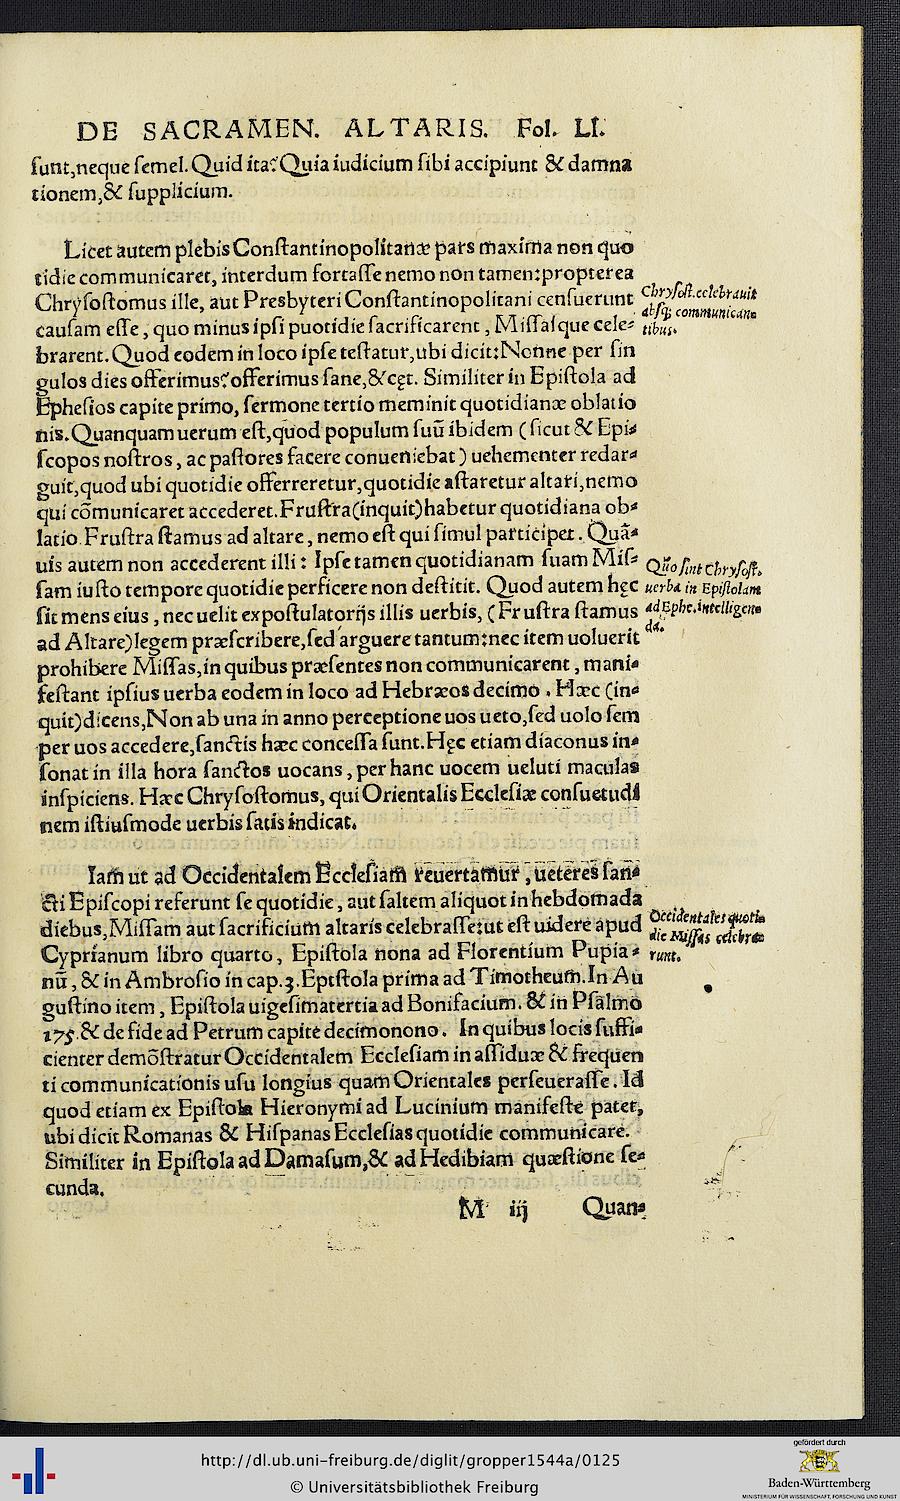 DE SACRAMEN. ALTARIS. Fol. LI.
ſunt,neque ſemel. Quid ita? Quia iudicium ſibi accipiunt & damna
tionem,& ſupplicium.
Licet autem plebis Conſtantinopolitanæ pars maxima non quo
tidie communicaret, interdum fortaſſe nemo non tamen:propterea
Chryſoſtomus ille, aut Presbyteri Conſtantinopolitani cenſuerunt
cauſam eſſe, quo minus ipſi puotidie ſacrificarent, Miſſaſque cele-
brarent. Quod eodem in loco ipſe teſtatur,ubi dicit:Nonne per ſin
gulos dies offerimus? offerimus ſane,&cęt. Similiter in Epiſtola ad
Epheſios capite primo, ſermone tertio meminit quotidianæ oblatio
nis. Quanquam uerum eſt,quod populum ſuū ibidem (ſicut & Epi-
ſcopos noſtros, ac paſtores facere conueniebat) uehementer redar-
guit,quod ubi quotidie offerreretur,quotidie aſtaretur altari,nemo
qui cōmunicaret accederet. Fruſtra(inquit)habetur quotidiana ob-
latio. Fruſtra ſtamus ad altare, nemo eſt qui ſimul participet. Quā-
uis autem non accederent illi: Ipſe tamen quotidianam ſuam Miſ-
ſam iuſto tempore quotidie perficere non deſtitit. Quod autem hęc
ſit mens eius, nec uelit expoſtulatorijs illis uerbis, (Fruſtra ſtamus
ad Altare)legem præſcribere,ſed arguere tantum:nec item uoluerit
prohibere Miſſas,in quibus præſentes non communicarent, mani-
feſtant ipſius uerba eodem in loco ad Hebræos decimo. Hæc (in-
quit)dicens,Non ab una in anno perceptione uos ueto,ſed uolo ſem
per uos accedere,ſanctis hæc conceſſa ſunt. Hęc etiam diaconus in-
ſonat in illa hora ſanctos uocans, per hanc uocem ueluti maculas
inſpiciens. Hæc Chryſoſtomus, qui Orientalis Eccleſiæ conſuetudi
nem iſtiuſmode uerbis ſatis indicat.
Chryſoſt.celebrauit
abſq; communican-
tibus.
Quo ſint Chryſoſt.
uerba in Epiſtolam
ad Ephe.intelligen-
da.
Iam ut ad Occidentalem Eccleſiam reuertamur, ueteres ſan-
cti Epiſcopi referunt ſe quotidie, aut ſaltem aliquot in hebdomada
diebus,Miſſam aut ſacrificium altaris celebraſſe:ut eſt uidere apud
Cyprianum libro quarto, Epiſtola nona ad Florentium Pupia-
nū, & in Ambroſio in cap.3.Eptſtola prima ad Timotheum.In Au
guſtino item, Epiſtola uigeſimatertia ad Bonifacium. & in Pſalmo
175.& de fide ad Petrum capite decimonono. In quibus locis ſuffi-
cienter demōſtratur Occidentalem Eccleſiam in aſſiduæ & frequen
ti communicationis uſu longius quam Orientales perſeueraſſe. Id
quod etiam ex Epiſtola Hieronymi ad Lucinium manifeſte patet,
ubi dicit Romanas & Hiſpanas Eccleſias quotidie communicare.
Similiter in Epiſtola ad Damaſum,& ad Hedibiam quæſtione ſe-
cunda.
Occidentales quoti-
die Miſſas celebra-
runt.
M iij Quan-
http://dl.ub.uni-freiburg.de/diglit/gropper1544a/0125
© Universitätsbibliothek Freiburg
gefördert durch
Baden-Württemberg
MINISTERIUM FÜR WISSENSCHAFT, FORSCHUNG UND KUNST